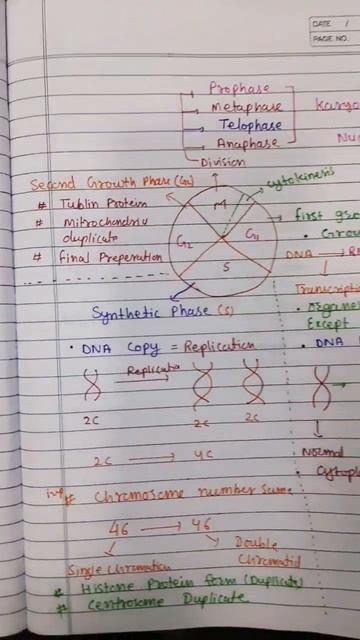 DATE /
PAGE NO.
Prophase
metaphase
Telophase
Anaphase
Division
Karyo
Nu
Second Growth Phase (G2)
cytokinesis
# Tublin Protein
# Mitrochondria
duplicate
# Final Preperation
M
G2
G1
S
first gro
Grow
DNA
Transcripti
Organe
Except
DNA
Synthetic Phase (S)
• DNA Copy = Replication
Replicate
2C
2C
2C
2C → 4C
Normal
Cytop
imp # Chromosome number same
46 → 46
Single Chromatien
Double
Chromatid
# Histone Protein form (Duplicate)
# Centrosome Duplicate